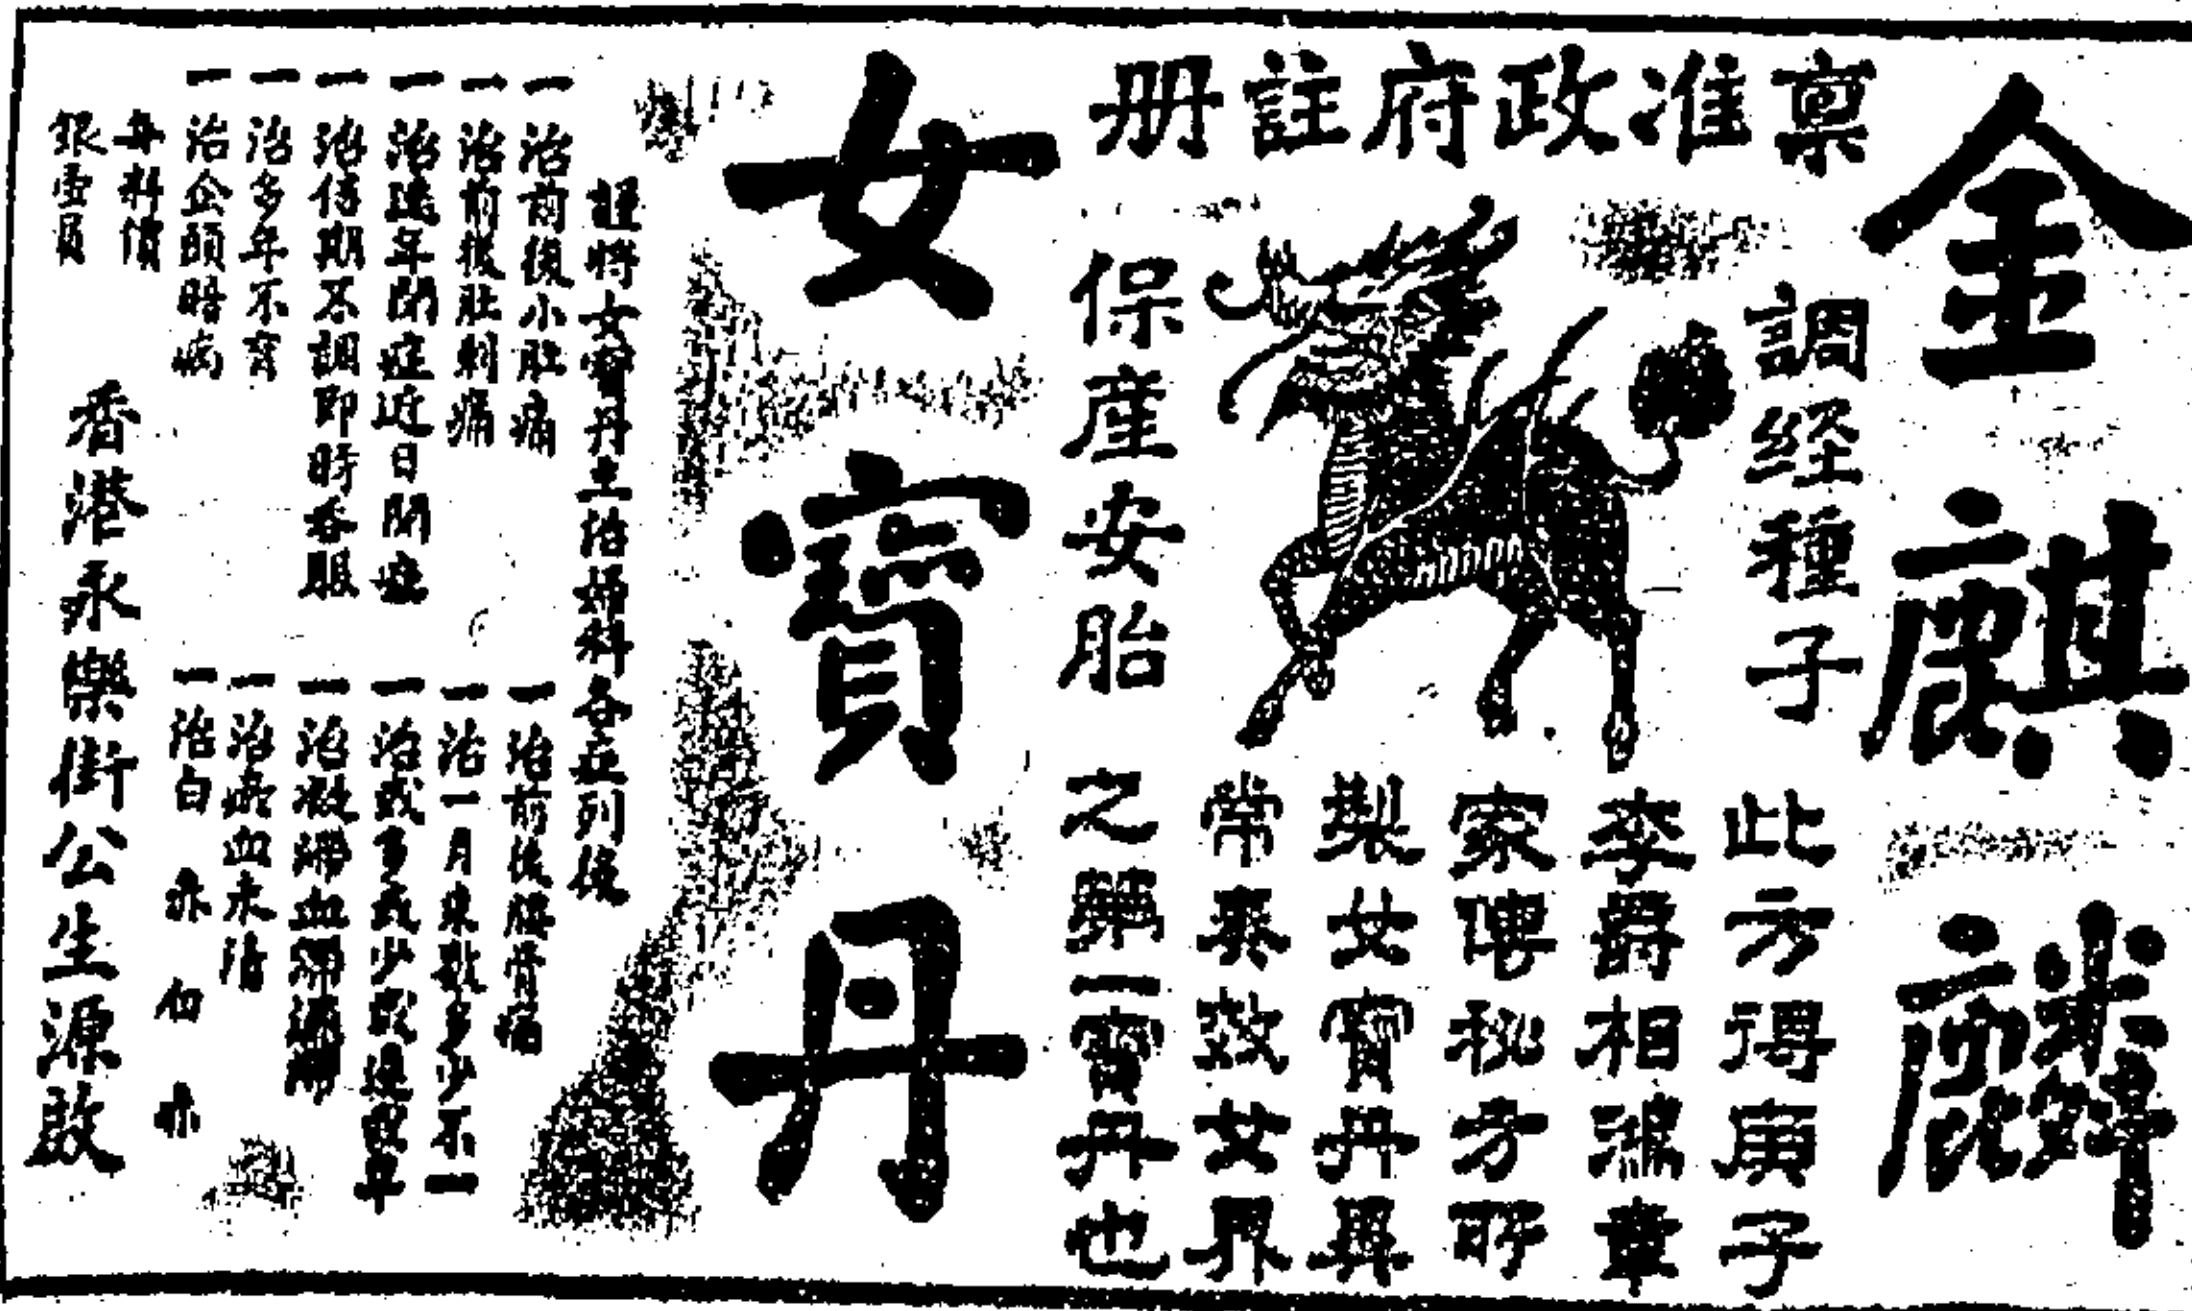 金麒麟
稟准政府註册
調経種子
保產安胎
此方得庚子
李爵相鴻章
家傳秘方所
製女寶丹異
常奏效女界
之第一寶丹也
女寶丹
謹將女寶丹主治婦科各症列後
一治前後小肚痛
一治前後肚刺痛
一治遠年閉症近日閉症
一治信期不調即時吞服
一治多年不育
一治企頭暗病
一治前後腰骨痛
一治一月來數多少不一
一治或多或少或遲或早
一治凝滯血滯
一治瘀血未清
一治白 赤 白 赤
每料價
銀壹員
香港永樂街公生源啟